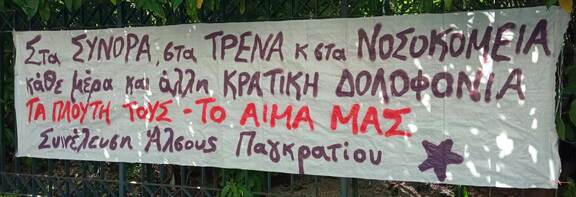 Στα ΣΥΝΟΡΑ, στα ΤΡΕΝΑ κ στα ΝΟΣΟΚΟΜΕΙΑ
κάθε μέρα και άλλη ΚΡΑΤΙΚΗ ΔΟΛΟΦΟΝΙΑ
ΤΑ ΠΛΟΥΤΗ ΤΟΥΣ - ΤΟ ΑΙΜΑ ΜΑΣ
Συνέλευση Άλσους Παγκρατίου